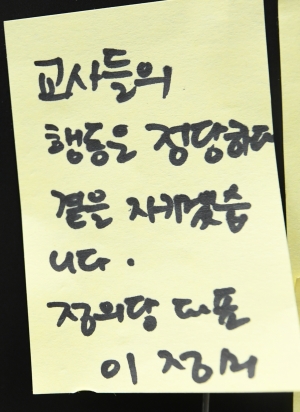 교사들의
행동은 정당하다
곁을 지키겠습
니다.
정의당 대표
이 정미